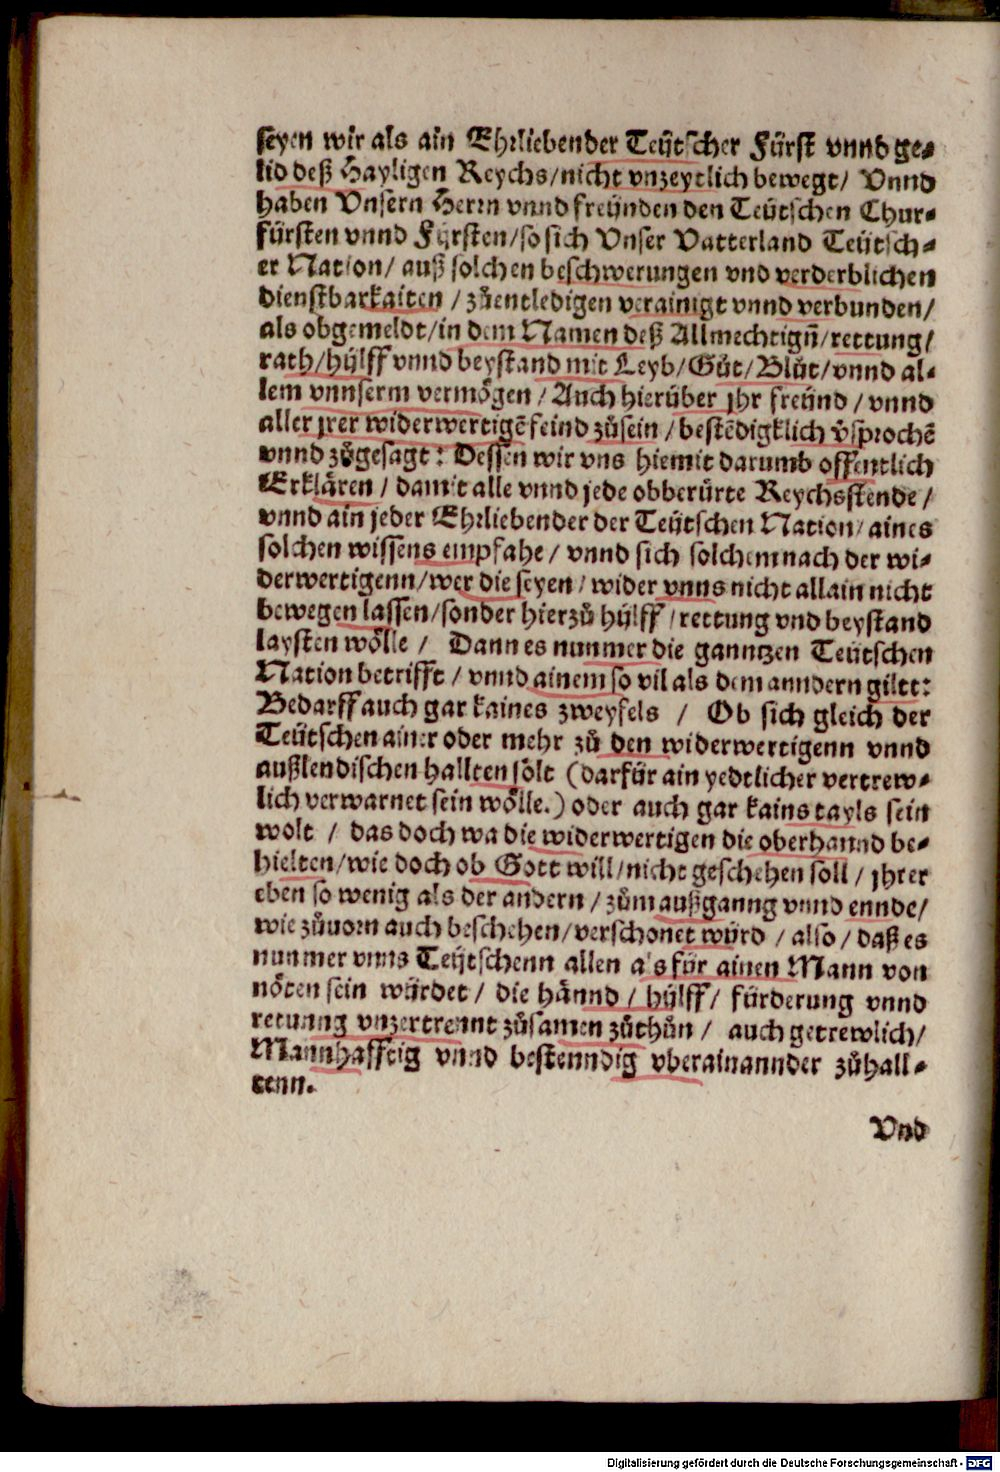 seyen wir als ain Ehrliebender Teütscher Fürst vnnd ge⸗
lid deß Hayligen Reychs/nicht vnzeytlich bewegt/ Vnnd
haben Vnsern Herrn vnnd freünden den Teütschen Chur⸗
fürsten vnnd Fürsten/so sich Vnser Vatterland Teütsch⸗
er Nation/ auß solchen beschwerungen vnd verderblichen
dienstbarkaiten / zůentledigen verainigt vnnd verbunden/
als obgemeldt/in dem Namen deß Allmechtigñ/rettung/
rath/hülff vnnd beystand mit Leyb/Gůt/Blůt/vnnd al⸗
lem vnnserm vermögen / Auch hierüber jhr freünd / vnnd
aller jrer widerwertigẽ feind zůsein / bestẽdigklich v̈sprochẽ
vnnd zůgesagt: Dessen wir vns hiemit darumb offentlich
Erklären / damit alle vnnd jede obberürte Reychsstende /
vnnd ain jeder Ehrliebender der Teütschen Nation/ aines
solchen wissens empfahe / vnnd sich solchem nach der wi⸗
derwertigenn/wer die seyen/ wider vnns nicht allain nicht
bewegen lassen/sonder hierzů hülff / rettung vnd beystand
laysten wölle / Dann es nunmer die ganntzen Teütschen
Nation betrifft / vnnd ainem so vil als dem anndern giltt:
Bedarff auch gar kaines zweyfels / Ob sich gleich der
Teütschen ainer oder mehr zů den widerwertigenn vnnd
außlendischen hallten sölt (darfür ain yedtlicher vertrew⸗
lich verwarnet sein wölle.) oder auch gar kains tayls sein
wolt / das doch wa die widerwertigen die oberhannd be⸗
hielten/wie doch ob Gott will/nicht geschehen soll / jhrer
eben so wenig als der andern / zům außganng vnnd ennde/
wie zůuorn auch beschehen/verschonet würd / also / daß es
nunmer vnns Teütschenn allen als für ainen Mann von
nöten sein würdet / die hännd / hülff/ fürderung vnnd
retunng vnzertrennt zůsamen zůthůn / auch getrewlich/
Mannhafftig vnnd bestenndig vberainannder zůhall⸗
tenn.
Vnd
Digitalisierung gefördert durch die Deutsche Forschungsgemeinschaft - DFG